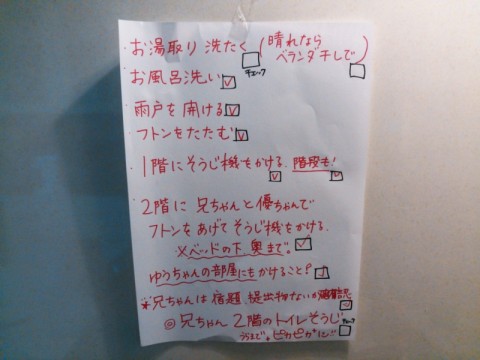 ・お湯取り 洗たく (晴れなら
ベランダ干しで)
チェック
・お風呂洗い
・雨戸を開ける
・フトンをたたむ
・1階にそうじ機をかける. 階段も!
・2階に 兄ちゃんと優ちゃんで
フトンをあげてそうじ機をかける.
※ベッドの下. 奥まで。
ゆうちゃんの部屋にもかけること!
※兄ちゃんは宿題、提出物ないか
◎兄ちゃん 2階のトイレそうじ
チェック
ピカピカに!!